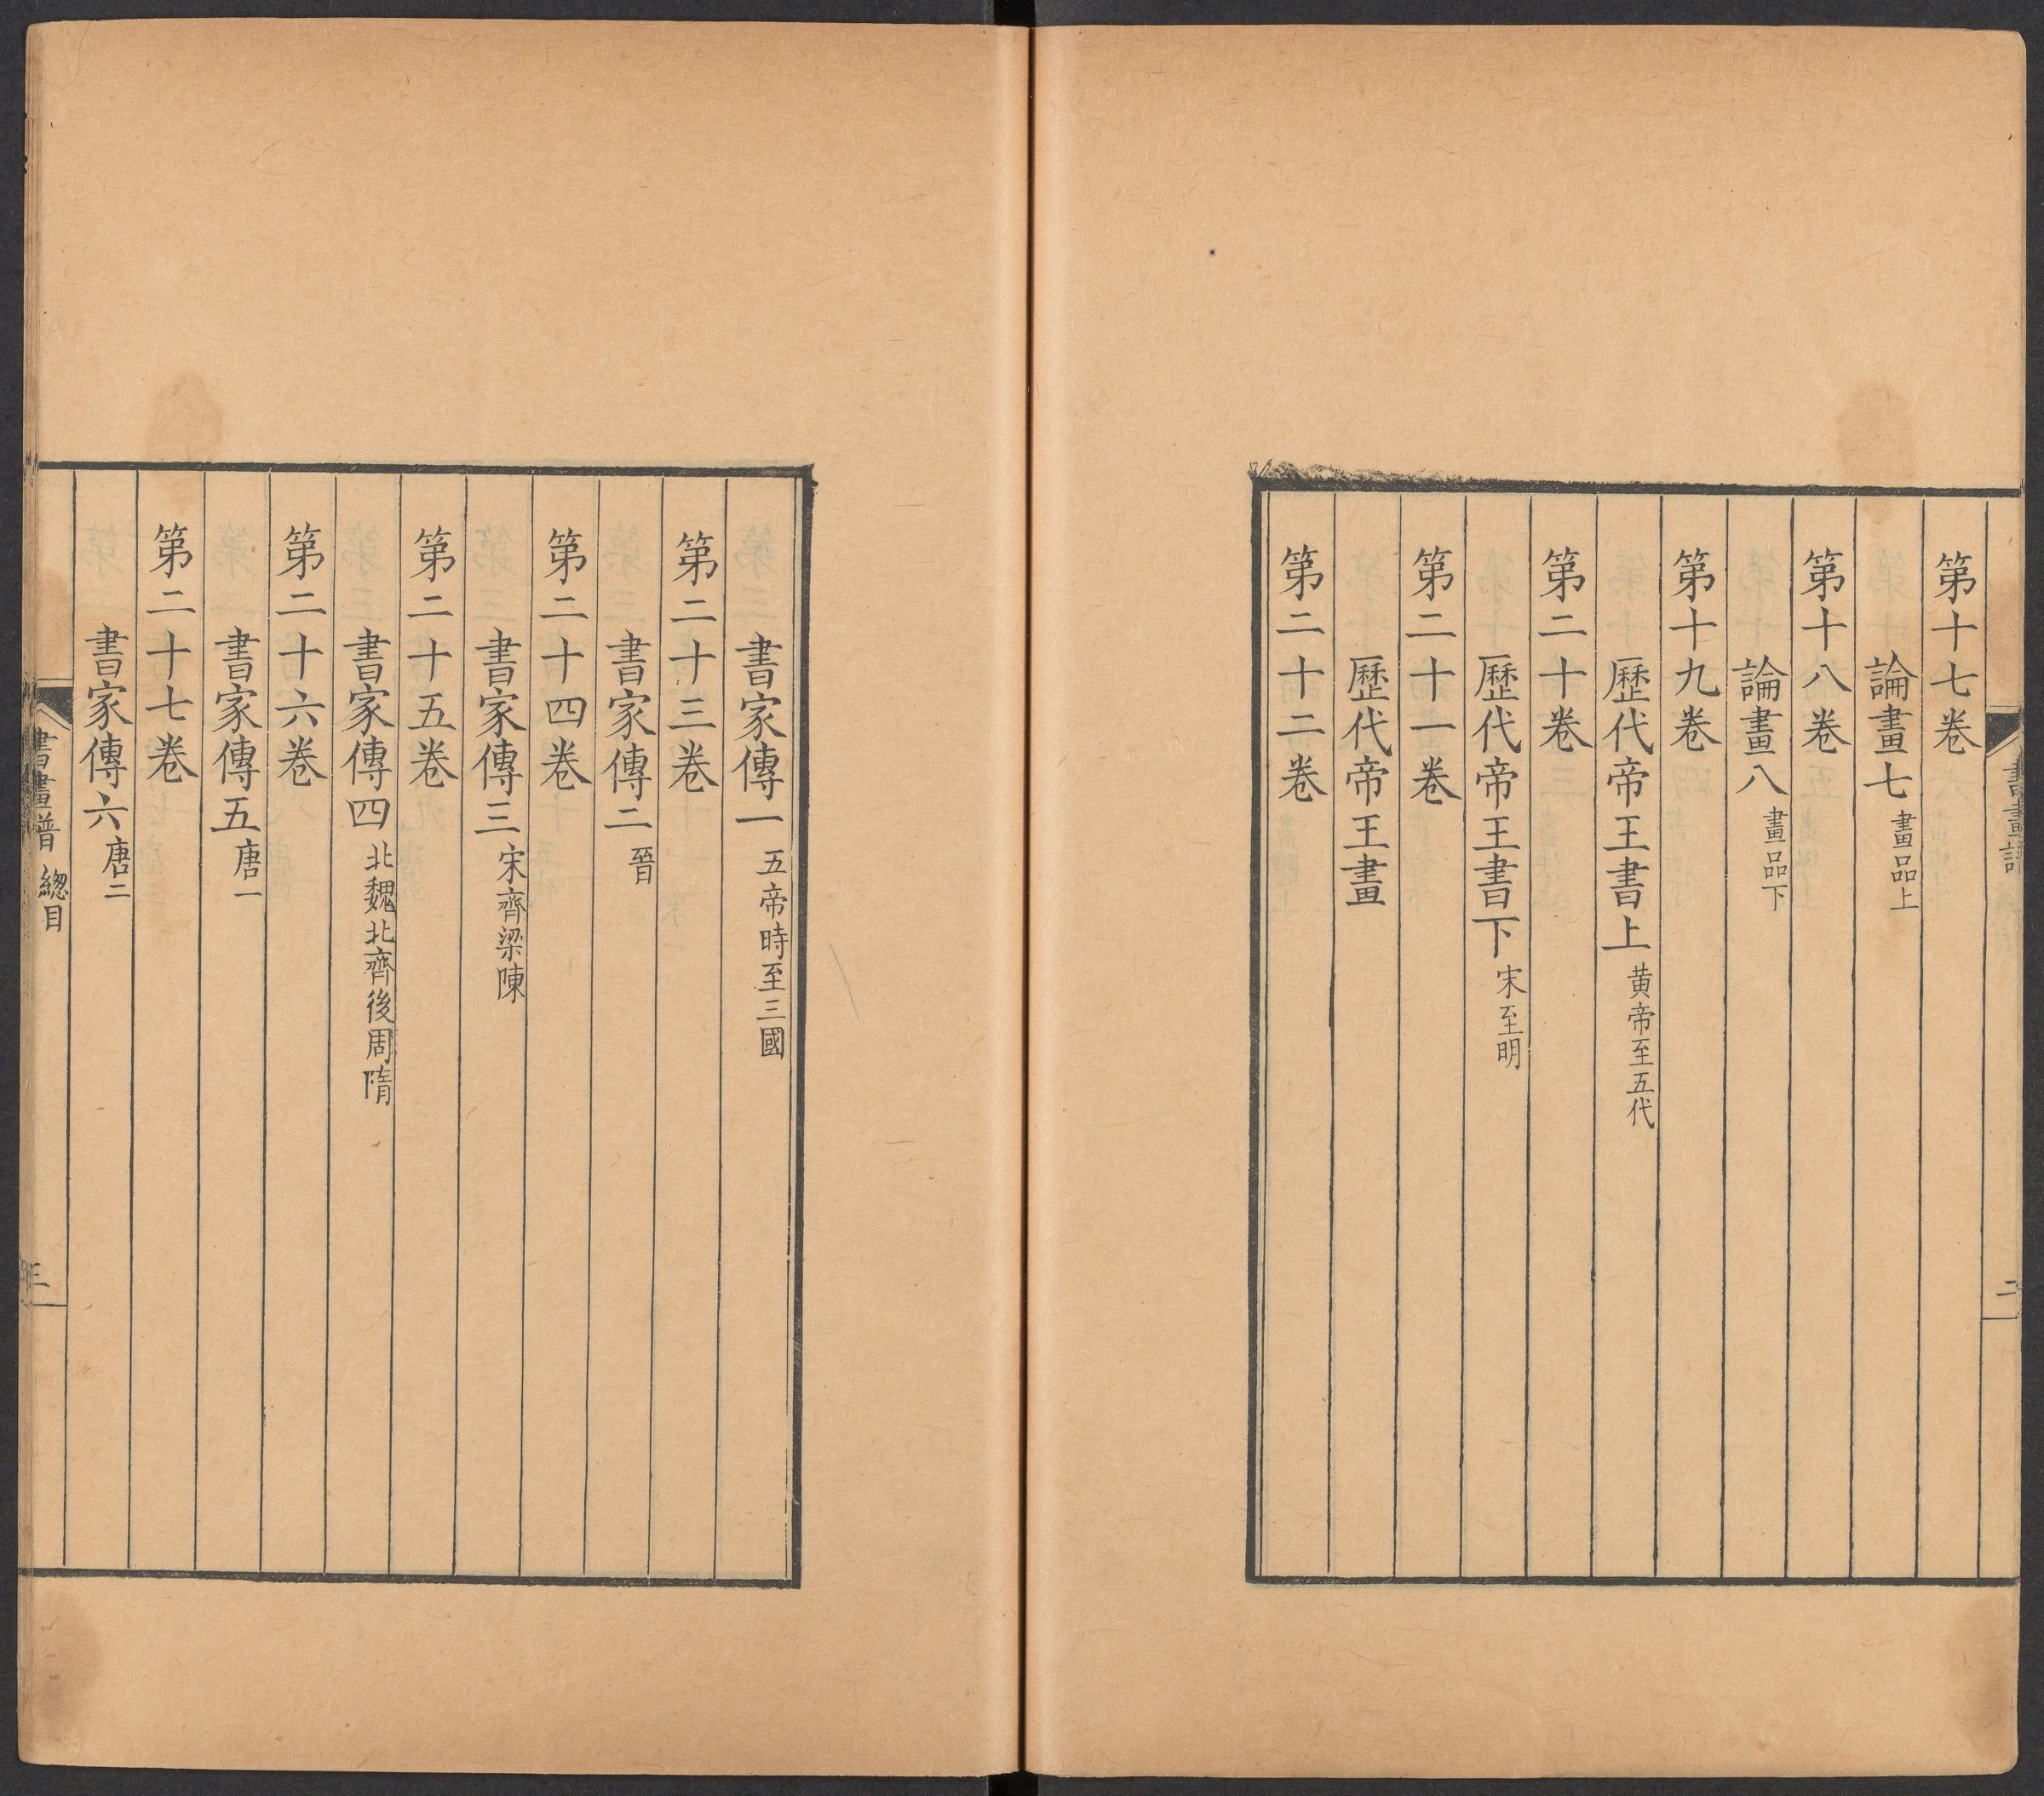 書畫譜
二
第十七卷
論畫七 畫品上
第十八卷
論畫八 畫品下
第十九卷
歷代帝王書上 黃帝至五代
第二十卷
歷代帝王書下 宋至明
第二十一卷
歷代帝王畫
第二十二卷
書家傳一 五帝時至三國
第二十三卷
書家傳二 晉
第二十四卷
書家傳三 宋齊梁陳
第二十五卷
書家傳四 北魏北齊後周隋
第二十六卷
書家傳五 唐一
第二十七卷
書家傳六 唐二
書畫譜 總目
三